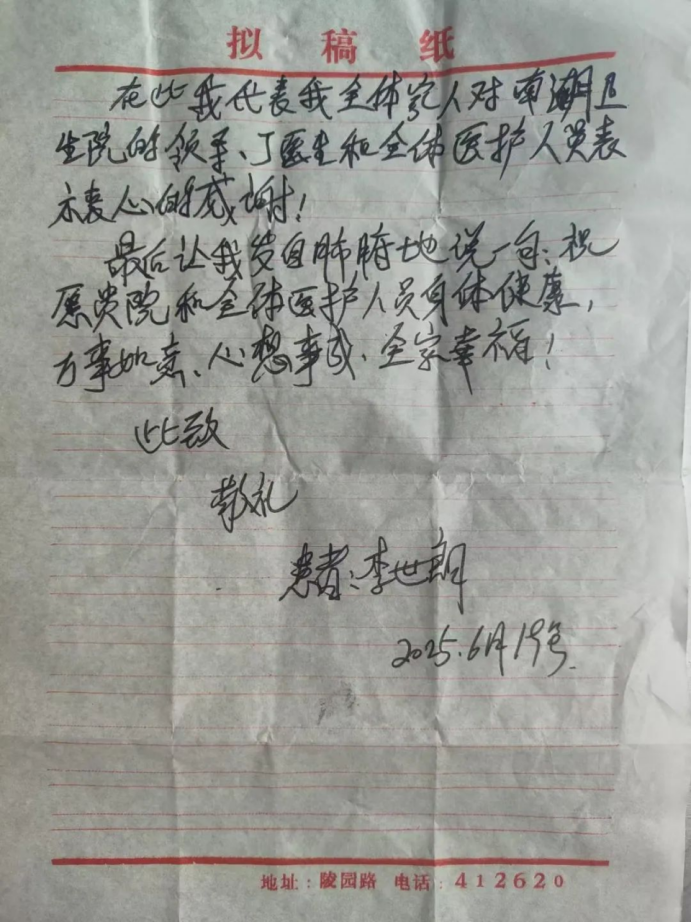 拟稿纸
在此我代表我全体家人对南湖卫
生院的领导、丁医生和全体医护人员表
示衷心的感谢!
最后让我发自肺腑地说一句:祝
愿贵院和全体医护人员身体健康,
万事如意、心想事成、全家幸福!
此致
敬礼
患者:李世朗
2025.6月19号.
地址:陵园路 电话:412620